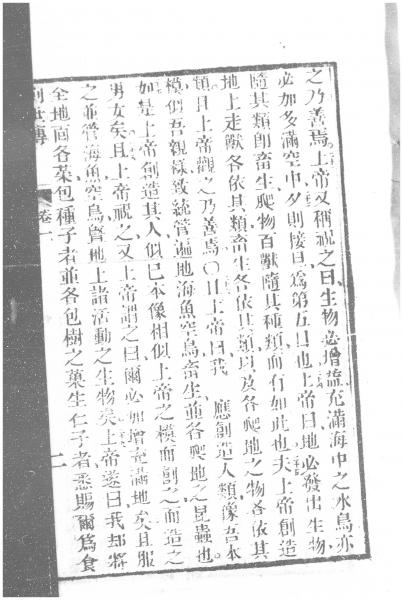 之乃善焉上帝又稱祝之曰生物必增益充滿海中之水鳥亦
必加多滿空中夕則接旦爲第五日也上帝曰地必發出生物
隨其類卽畜生爬物百獸隨其種類而行如此也夫上帝創造
地上走獸各依其類畜生各依其類以及各爬地之物各依其
類且上帝觀之乃善焉〇上帝曰我應創造人類像吾本
模似吾親樣致統管遍地海魚空鳥畜生並各爬地之昆蟲也
如是上帝創造其人似已本像相似上帝之模而創之而造之
男女矣且上帝祝之又上帝謂之曰爾必加增充滿地矣且服
之並管海魚空鳥暨地上諸活動之生物矣上帝遂曰我却將
全地面各菜包種子者並各包樹之菓生仁子者悉賜爾爲食
創世傳 卷一 二